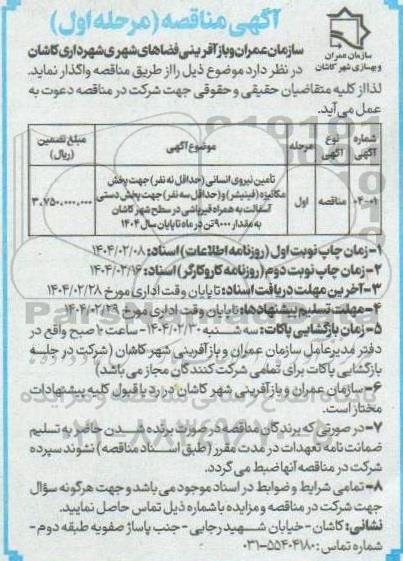 آگهی مناقصه (مرحله اول)
سازمان عمران
و بهسازی شهر کاشان
سازمان عمران و باز آفرینی فضاهای شهری شهرداری کاشان
در نظر دارد موضوع ذیل را از طریق مناقصه واگذار نماید.
لذا از کلیه متقاضیان حقیقی و حقوقی جهت شرکت در مناقصه دعوت به
عمل می‌آید.
شماره آگهی	نوع آگهی	مرحله	موضوع آگهی	مبلغ تضمین (ریال)
۰۴-۰۱	مناقصه	اول	تامین نیروی انسانی (حداقل نه نفر) جهت پخش	۳,۷۵۰,۰۰۰,۰۰۰
مکانیزه (فینیشر) و (حداقل سه نفر) جهت پخش دستی
آسفالت به همراه قیرپاشی در سطح شهر کاشان
به مقدار ۹۰۰۰ تن در ماه تا پایان سال ۱۴۰۴
۱- زمان چاپ نوبت اول (روزنامه اطلاعات) اسناد: ۱۴۰۴/۰۲/۰۸
۲- زمان چاپ نوبت دوم (روزنامه کاروکارگر) اسناد: ۱۴۰۴/۰۲/۱۶
۳- آخرین مهلت دریافت اسناد: تا پایان وقت اداری مورخ ۱۴۰۴/۰۲/۲۸
۴- مهلت تسلیم پیشنهادها: تا پایان وقت اداری مورخ ۱۴۰۴/۰۲/۲۹
۵- زمان بازگشایی پاکات: سه شنبه ۱۴۰۴/۰۲/۳۰- ساعت ۱۰ صبح واقع در
دفتر مدیرعامل سازمان عمران و باز آفرینی شهر کاشان (شرکت در جلسه
بازگشایی پاکات برای تمامی شرکت کنندگان مجاز می باشد)
۶- سازمان عمران و باز آفرینی شهر کاشان در رد یا قبول کلیه پیشنهادات
مختار است.
۷- در صورتی که برندگان مناقصه در صورت برنده شدن حاضر به تسلیم
ضمانت نامه تعهدات در مدت مقرر (طبق اسناد مناقصه) نشوند سپرده
شرکت در مناقصه آنها ضبط می گردد.
۸- تمامی شرایط و ضوابط در اسناد موجود می باشد و جهت هرگونه سؤال
جهت شرکت در مناقصه و مزایده با شماره ذیل تماس حاصل نمایید.
نشانی: کاشان - خیابان شهید رجایی - جنب پاساژ صفویه طبقه دوم -
شماره تماس: ۵۵۴۰۴۱۸۰-۰۳۱